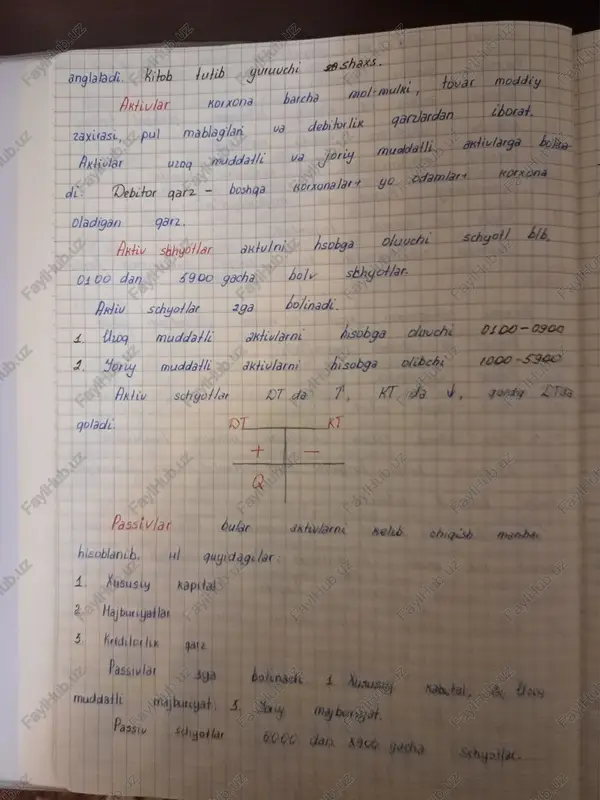 anglatadi. Kitob tutib yuruvchi shaxs.
Aktivlar korxona barcha mol-mulki, tovar moddiy
zaxirasi, pul mablag'lari va debitorlik qarzlardan iborat.
Aktivlar uzoq muddatli va joriy muddatli aktivlarga bo'lina-
di. Debitor qarz - boshqa korxonalar yo odamlar korxona
oladigan qarz.
Aktiv schyotlar aktivlni hsobga oluvchi schyotl b/b.
0100 dan 5900 gacha bolv schyotlar.
Aktiv schyotlar 2ga bo'linadi.
1. Uzoq muddatli aktivlarni hisobga oluvchi 0100-0900
2. Joriy muddatli aktivlarni hisobga olibchi 1000-5900
Aktiv schyotlar DT da ↑, KT da ↓, qoldiq DTda
qoladi.
DT KT
+ -
Q
Passivlar bular aktivlarni kelib chiqish manbai
hisoblanib, ul quyidagilar:
1. Xususiy kapital
2. Majburiyatlar
3. Kriditorlik qarz
Passivlar 3ga bo'linadi 1. Xususiy kapital, 2. Uzoq
muddatli majburiyat. 3. Joriy majburiyat.
Passiv schyotlar 6000 dan 8900 gacha schyotlar.
FaylHub.uz